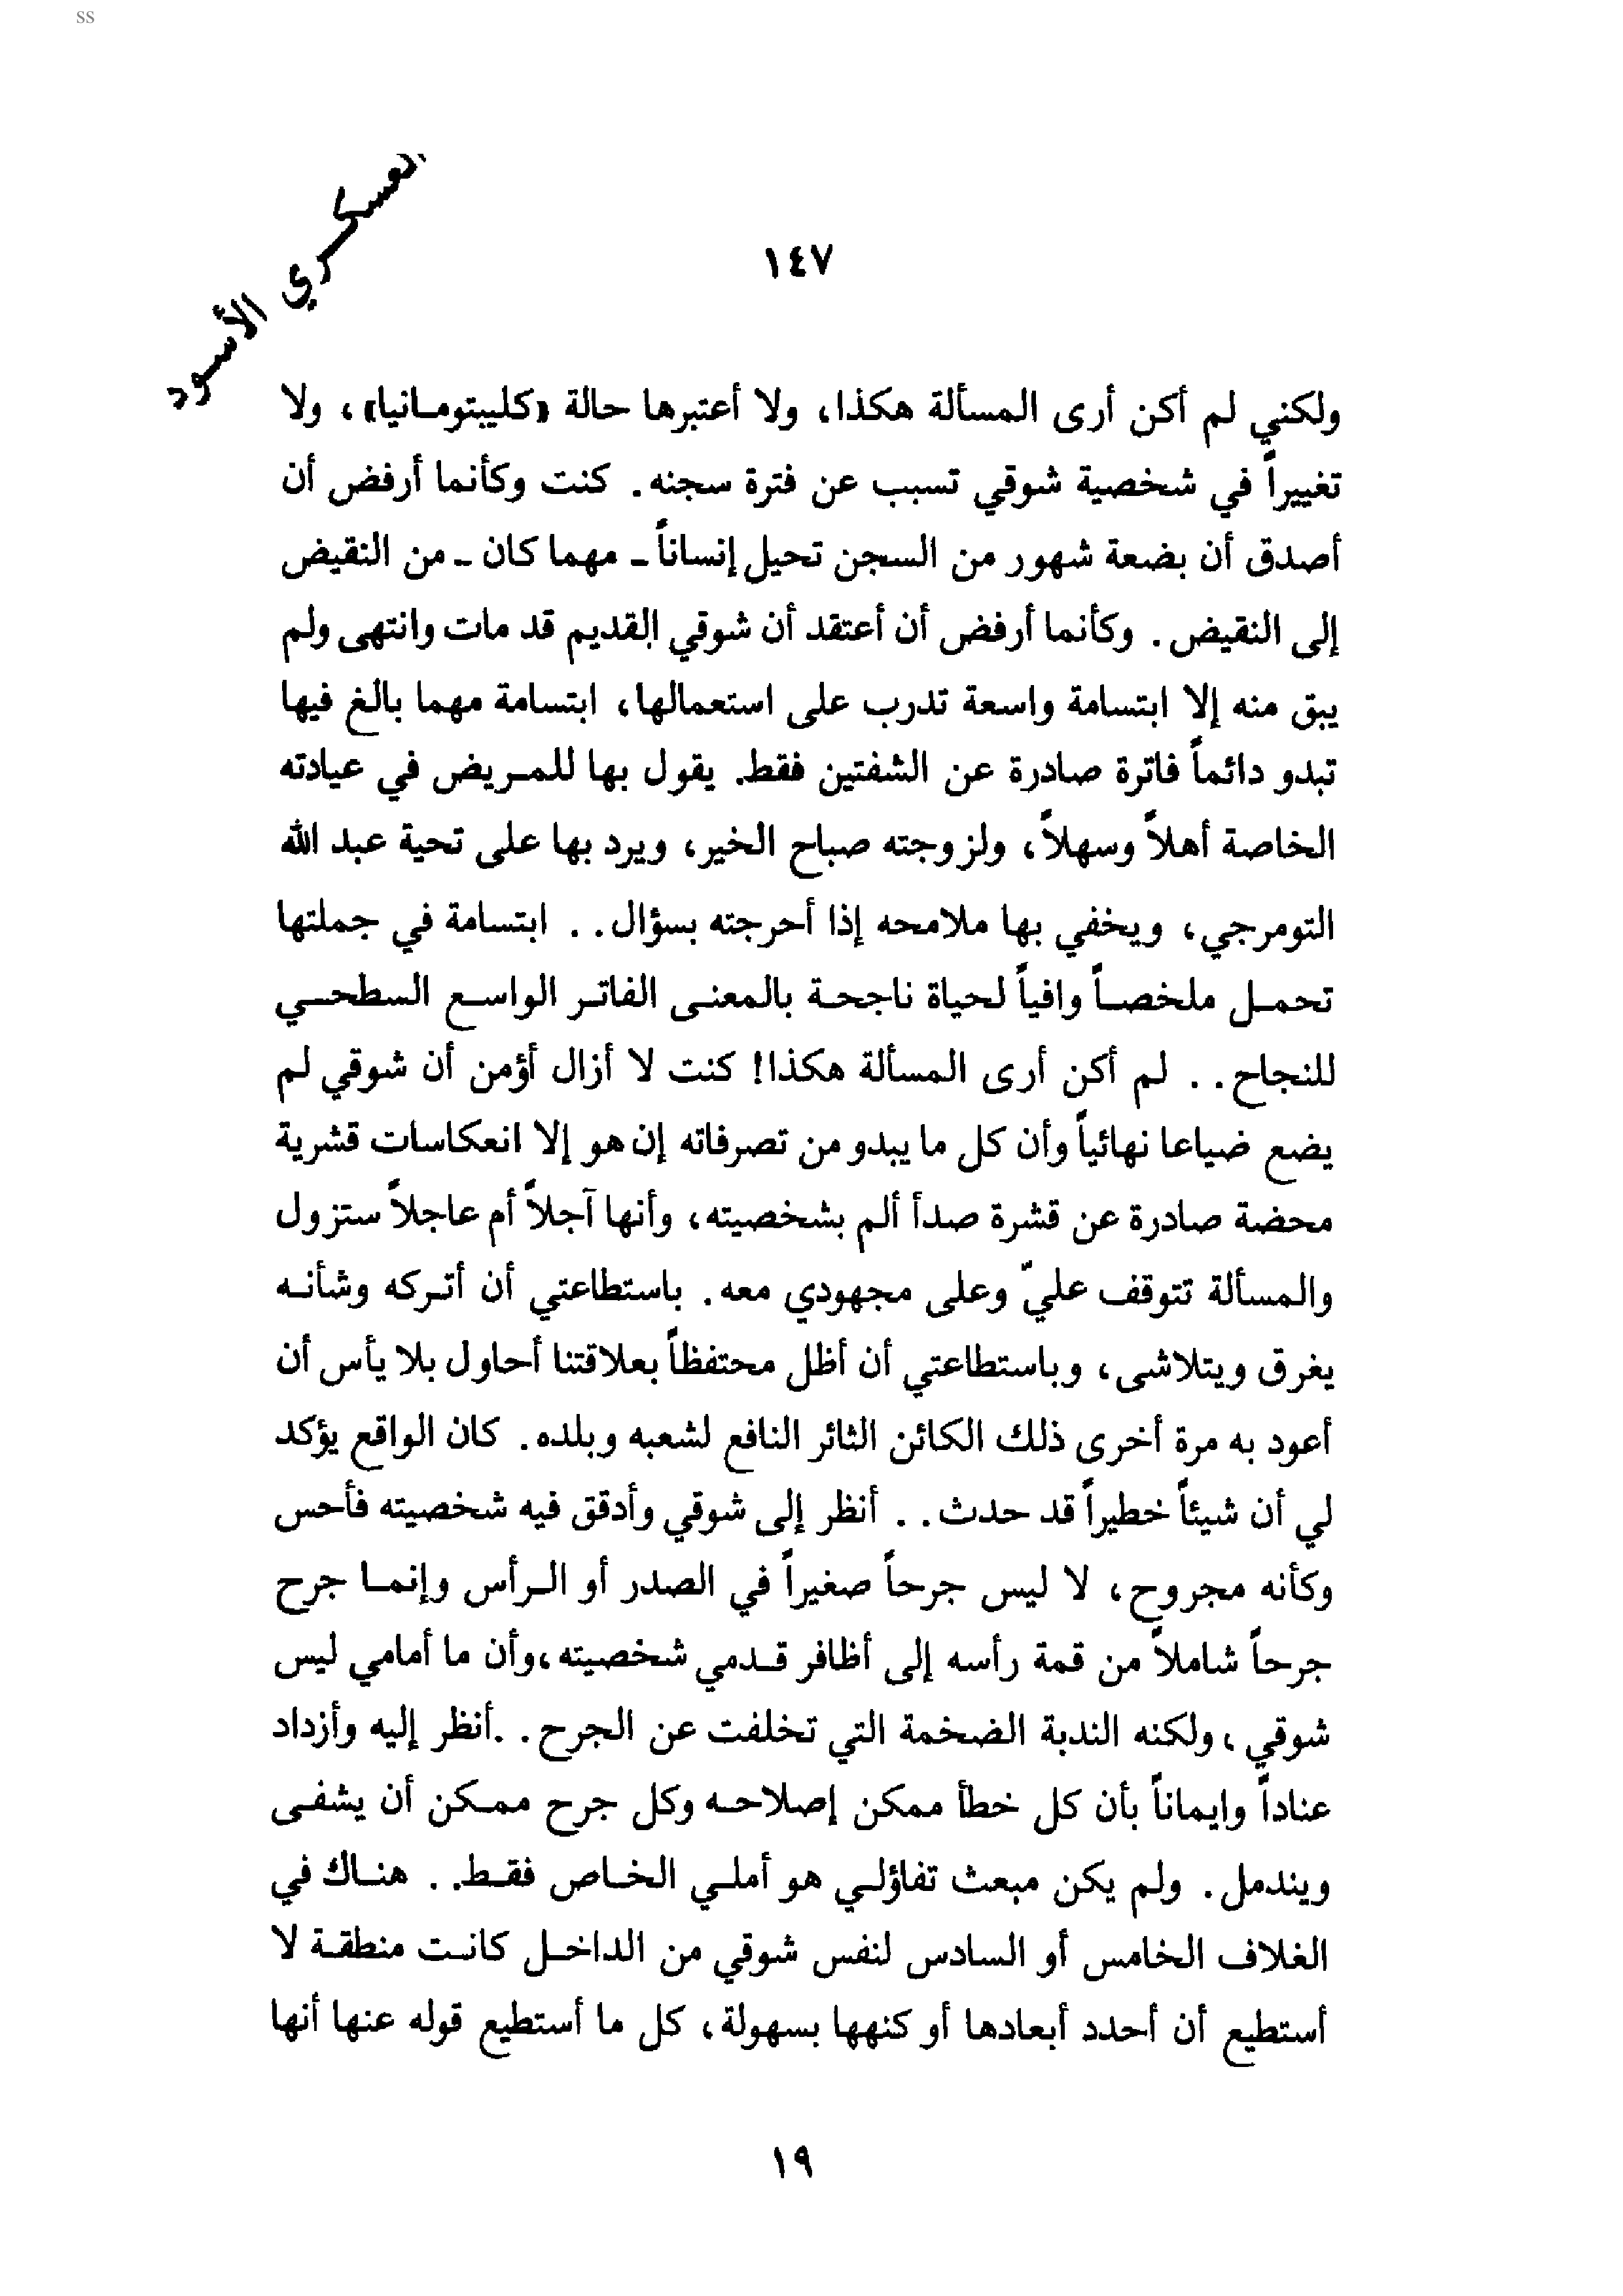 ss
العسكري الأسود
١٤٧
ولكني لم أكن أرى المسألة هكذا، ولا أعتبرها حالة «كليبتومـانيا»، ولا
تغييراً في شخصية شوقي تسبب عن فترة سجنه. كنت وكأنما أرفض أن
أصدق أن بضعة شهور من السجن تحيل إنساناً ـ مهما كان ـ من النقيض
إلى النقيض. وكأنما أرفض أن أعتقد أن شوقي القديم قد مات وانتهى ولم
يبق منه إلا ابتسامة واسعة تدرب على استعمالها، ابتسامة مهما بالغ فيها
تبدو دائماً فاترة صادرة عن الشفتين فقط. يقول بها للمـريض في عيادته
الخاصة أهلاً وسهلاً، ولزوجته صباح الخير، ويرد بها على تحية عبد الله
التومرجي، ويخفي بها ملامحه إذا أحرجته بسؤال.. ابتسامة في جملتها
تحمـل ملخصـاً وافياً لحياة ناجحـة بالمعنـى الفاتـر الواسـع السطحـي
للنجاح.. لم أكن أرى المسألة هكذا! كنت لا أزال أؤمن أن شوقي لم
يضع ضياعا نهائياً وأن كل ما يبدو من تصرفاته إن هو إلا انعكاسات قشرية
محضة صادرة عن قشرة صدأ ألم بشخصيته، وأنها آجلاً أم عاجلاً ستزول
والمسألة تتوقف عليّ وعلى مجهودي معه. باستطاعتي أن أتـركه وشأنـه
يغرق ويتلاشى، وباستطاعتي أن أظل محتفظاً بعلاقتنا أحاول بلا يأس أن
أعود به مرة أخرى ذلك الكائن الثائر النافع لشعبه وبلده. كان الواقع يؤكد
لي أن شيئاً خطيراً قد حدث.. أنظر إلى شوقي وأدقق فيه شخصيته فأحس
وكأنه مجروح، لا ليس جرحاً صغيراً في الصدر أو الـرأس وإنمـا جرح
جرحاً شاملاً من قمة رأسه إلى أظافر قـدمي شخصيته،وأن ما أمامي ليس
شوقي، ولكنه الندبة الضخمة التي تخلفت عن الجرح. .أنظر إليه وأزداد
عناداً وايماناً بأن كل خطأ ممكن إصلاحـه وكل جرح ممـكن أن يشفـى
ويندمل. ولم يكن مبعث تفاؤلـي هو أملـي الخـاص فقـط.. هنـاك في
الغلاف الخامس أو السادس لنفس شوقي من الداخـل كانـت منطقـة لا
أستطيع أن أحدد أبعادها أو كنهها بسهولة، كل ما أستطيع قوله عنها أنها
١٩